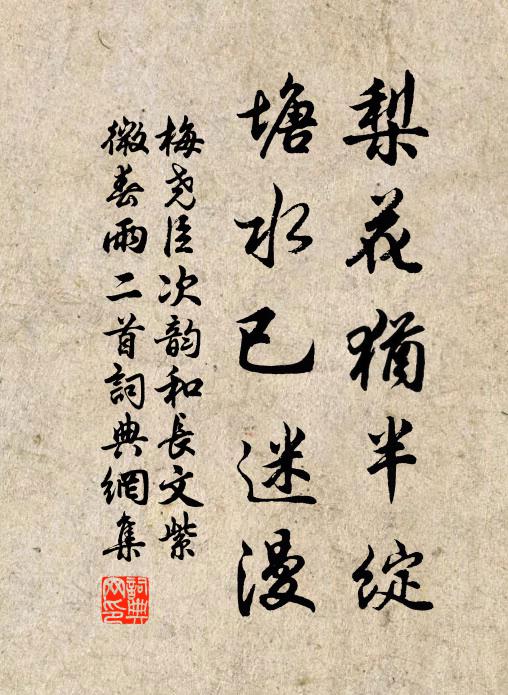 梨花犹半綻
塘水已迷漫
梅尧臣次韵和長文紫
微春雨二首詞典網集
詞典网印